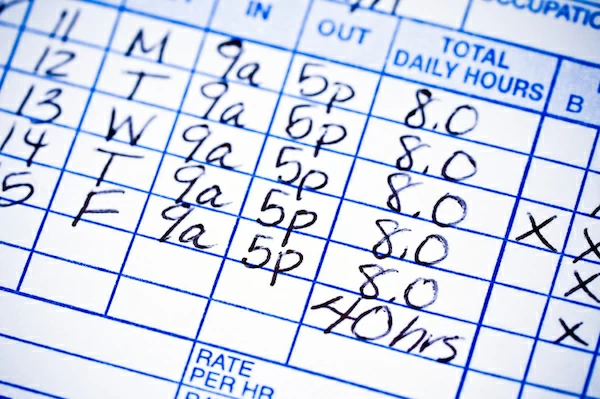 IN OUT TOTAL DAILY HOURS B
11 M 9a 5p 8.0
12 T 9a 5p 8.0
13 W 9a 5p 8.0 X
14 T 9a 5p 8.0 X
F 9a 5p 8.0 X
40hrs X
RATE
PER HR